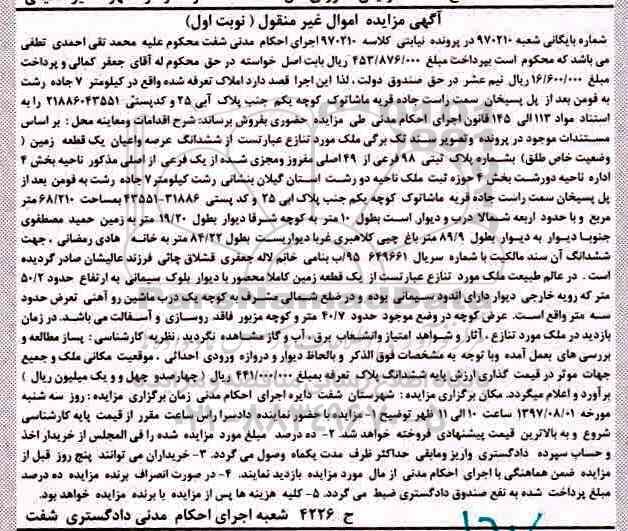 آگهی مزایده اموال غیر منقول ( نوبت اول)
شماره بایگانی شعبه ۹۷۰۲۱۰ در پرونده نیابتی کلاسه ۹۷۰۲۱۰ اجرای احکام مدنی شفت محکوم علیه محمد تقی احمدی تطفی
می باشد که محکوم است بپرداخت مبلغ ۴۵۳/۸۷۶/۰۰۰ ریال بابت اصل خواسته در حق محکوم له آقای جعفر کمالی و پرداخت
مبلغ ۱۶/۶۰۰/۰۰۰ ریال نیم عشر در حق صندوق دولت ، لذا این اجرا قصد دارد املاک تعرفه شده واقع در کیلومتر ۷ جاده رشت
به فومن بعد از پل پسیخان سمت راست جاده قریه ماشاتوک کوچه یکم جنب پلاک آبی ۲۵ و کدپستی ۴۳۵۵۱-۲۱۸۸۶ را به
استناد مواد ۱۱۳ الی ۱۴۵ قانون اجرای احکام مدنی طی مزایده حضوری بفروش برساند: شرح اقدامات ومعاینه محل : بر اساس
مستندات موجود در پرونده وتصویر سند تک برگی ملک مورد تنازع عبارتست از ششدانگ عرصه واعیان یک قطعه زمین (
وضعیت خاص طلق) بشماره پلاک ثبتی ۹۸ فرعی از ۴۹ اصلی مفروز ومجزی شده از یک فرعی از اصلی مذکور ناحیه بخش ۴
اداره ناحیه دورشت بخش ۴ حوزه ثبت ملک ناحیه دو رشت استان گیلان بنشانی رشت کیلومتر ۷ جاده رشت به فومن بعد از
پل پسیخان سمت راست جاده قریه ماشاتوک کوچه یکم جنب پلاک ابی ۲۵ و کد پستی ۳۱۸۸۶-۴۳۵۵۱ بمساحت ۶۸/۲۱۰ متر
مربع و با حدود اربعه شمالا درب و دیوار است بطول ۱۰ متر به کوچه شرقا دیوار بطول ۱۹/۲۰ متر به زمین حمید مصطفوی
جنوبا دیوار به دیوار بطول ۸۹/۹ متر باغ چیی کلاهبری غربا دیواریست بطول ۸۴/۲۲ متر به خانه هادی رمضانی ، جهت
ششدانگ آن سند مالکیت با شماره سریال ۶۴۹۶۶۱ ۹۵/ب بنامی خانم لاله جعفری قشلاق چائی فرزند عالیشان صادر گردیده
است . در عالم طبیعت ملک مورد تنازع عبارتست از یک قطعه زمین کاملا محصور با دیوار بلوک سیمانی به ارتفاع حدود ۵۰/۲
متر که رویه خارجی دیوار دارای اندود سیمانی بوده و در ضلع شمالی مشرف به کوچه یک درب ماشین رو آهنی تعرض حدود
سه متر واقع است. عرض کوچه در وضع موجود حدود ۴۰/۷ متر و کوچه مزبور فاقد روسازی و آسفالت می باشد. در زمان
بازدید در ملک مورد تنازع ، آثار و شواهد امتیاز وانشعاب برق ، آب و گاز مشاهده نگردید ، نظریه کارشناسی : پساز مطالعه و
بررسی های بعمل آمده وبا توجه به مشخصات فوق الذکر و بالحاظ دیوار و دروازه ورودی احداثی ، موقعیت مکانی ملک و جمیع
جهات موثر در قیمت گذاری ارزش پایه ششدانگ پلاک تعرفه بمبلغ ۴۴۱/۰۰۰/۰۰۰ ریال ( چهارصدو چهل و و یک میلیون ریال )
برآورد و اعلام میگردد. مکان برگزاری مزایده : شهرستان شفت دایره اجرای احکام مدنی زمان برگزاری مزایده : روز سه شنبه
مورخه ۱۳۹۷/۰۸/۰۱ ساعت ۱۰ الی ۱۱ ظهر توضیح ۱- مزایده با حضور نماینده دادسرا راس ساعت مقرر از قیمت پایه کارشناسی
شروع و به بالاترین قیمت پیشنهادی فروخته خواهد شد. ۲- ده درصد مبلغ مورد مزایده شده را فی المجلس از خریدار اخذ
و حساب سپرده دادگستری واریز ومابقی حداکثر ظرف مدت یکماه وصول می گردد. ۳- خریداران می توانند پنج روز قبل از
مزایده ضمن هماهنگی با اجرای احکام مدنی از مال مورد مزایده بازدید نمایند. ۴- در صورت انصراف برنده مزایده ده درصد
مبلغ پرداخت شده به نفع صندوق دادگستری ضبط می گردد. ۵- کلیه هزینه ها پس از مزایده یا برنده مزایده خواهد بود.
ح ۴۲۲۶ شعبه اجرای احکام مدنی دادگستری شفت